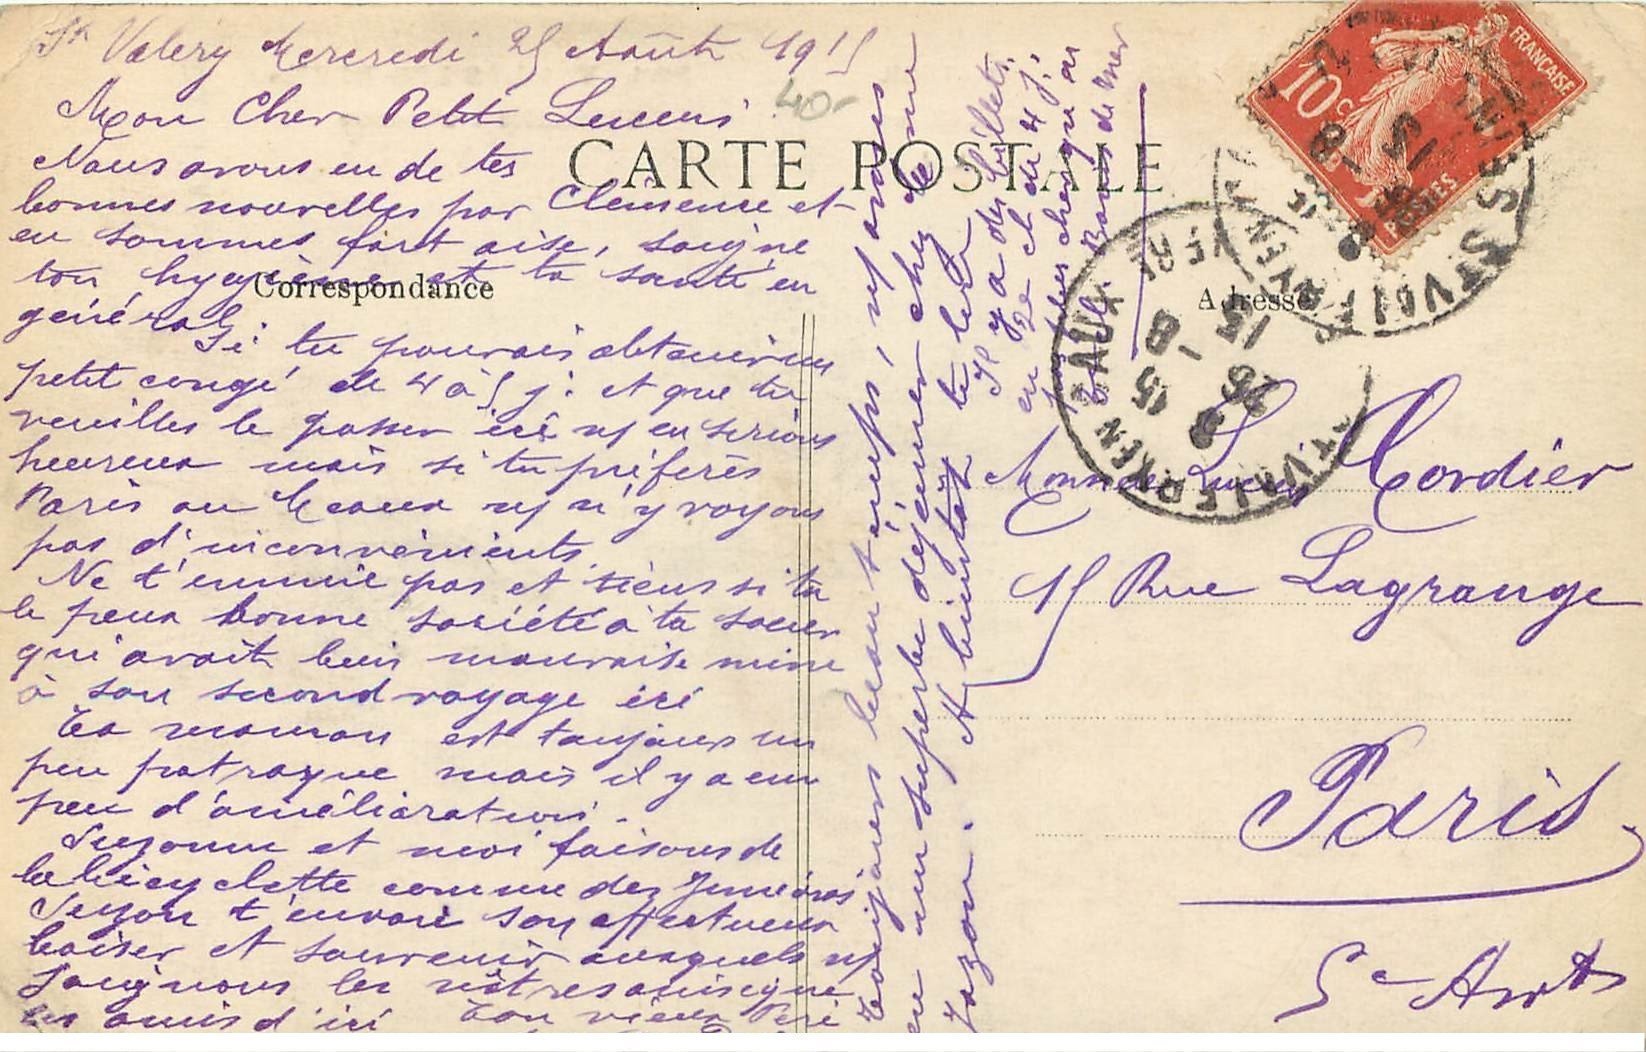 St Valery Mercredi 25 Août 1915
Mon Cher Petit Lucien
40-
CARTE POSTALE
Nous avons eu de tes
bonnes nouvelles par Clémence et
en sommes fort aise, soigne
ton hygiène et ta santé en
Correspondance
général
Si tu pouvais obtenir un
petit congé de 4 à 5 j: et que tu
veuilles le passer ici ns en serions
heureux mais si tu préferes
Paris ou Meaux ns n'y voyons
pas d'inconvénients.
Ne t'ennuie pas et tiens si tu
le peux bonne société à ta soeur
qui avait bien mauvaise mine
à son second voyage ici
Ta maman est toujours un
peu patraque mais il y a eu
peu d'amélioration.
Suzanne et moi faisons de
la bicyclette comme des
Suzon t'envoie son affectueux
baiser et souvenir auxquels ns
joignons les nôtres ainsi que
les amis d'ici Ton vieux Pere
Toujours beau temps, ns avons
eu un superbe déjeuner chez
A bientôt te lire
Il y a des billets
en 3e cl du 4 j:
jusques chaque
Adresse
Monsieur Lucien L Cordier
15 Rue Lagrange
Paris
5e Arrt
10c
FRANÇAISE
POSTES